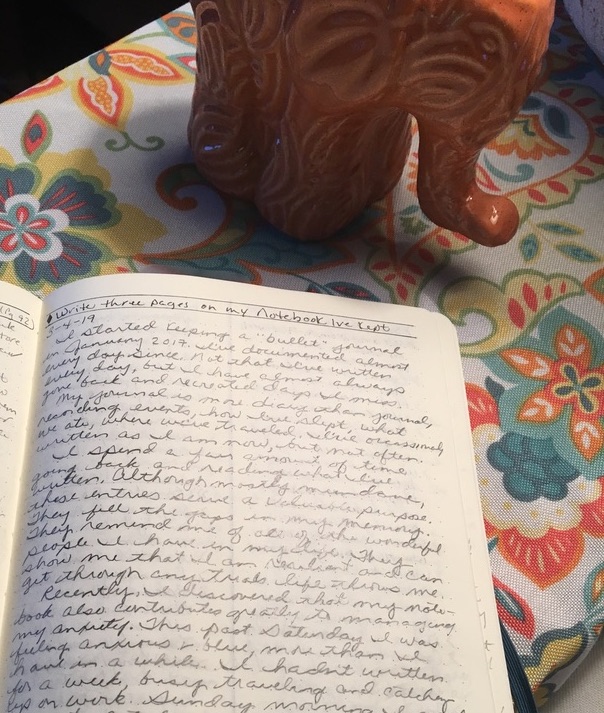 (Pg 92)
• Write three pages on my Notebook I've kept
3-4-19
I started keeping a "bullet" journal
in January 2017. I've documented almost
every day since. Not that I've written
every day, but I have almost always
gone back and recreated days I miss.
My journal is more diary than journal,
recording events, how I've slept, what
we ate, where we've traveled. I've occassionally
written as I am now, but not often.
I spend a fair amount of time
going back and reading what I've
written. Although mostly mundane,
these entries serve a valuable purpose.
They fill the gaps in my memory.
They remind me of all of the wonderful
people I have in my life. They
show me that I am resilient and can
get through any trials life throws me.
Recently, I discovered that my note-
book also contributes greatly to managing
my anxiety. This past Saturday I was
feeling anxious & blue, more than I
have in a while. I hadn't written
for a week, busy traveling and catching
up on work. Sunday morning I